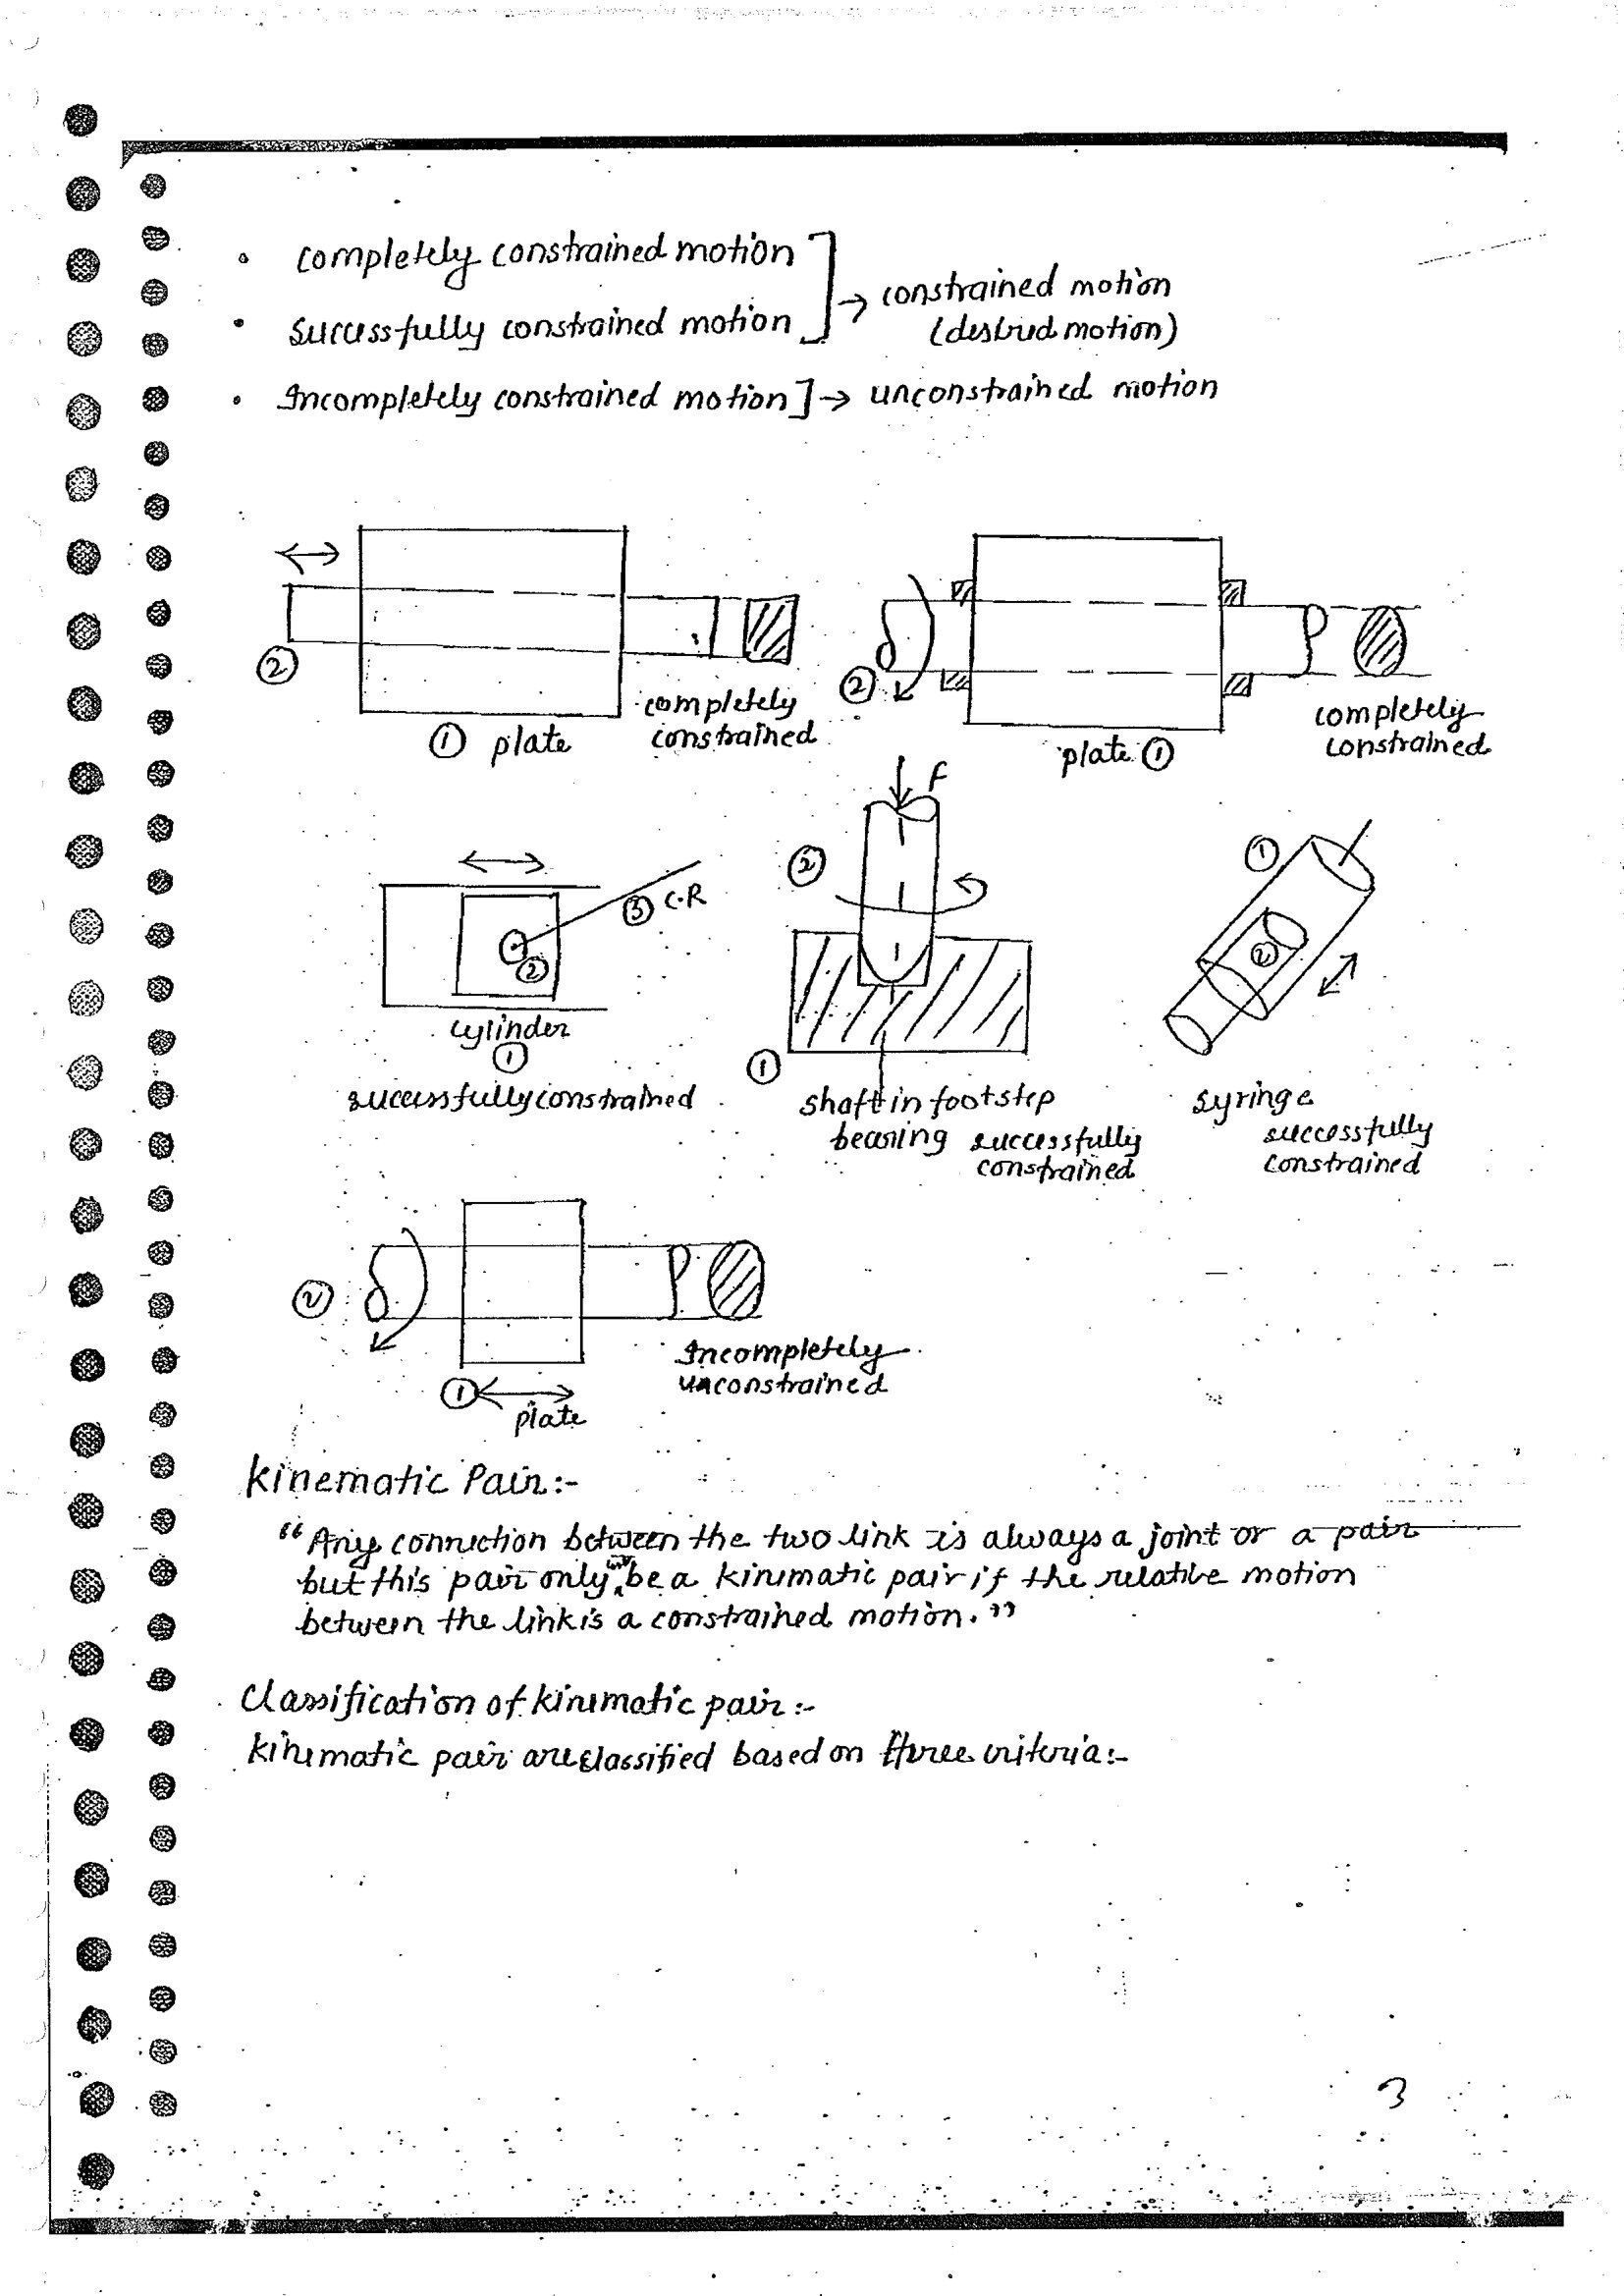 • completely constrained motion
• Successfully constrained motion ] → constrained motion
(desired motion)
• Incompletely constrained motion ] → unconstrained motion
②
① plate
completely
constrained
②
plate ①
completely
constrained
③ C.R
②
cylinder
①
successfully constrained
F
②
①
shaft in footstep
bearing successfully
constrained
①
②
Syringe
successfully
constrained
②
①
plate
Incompletely
unconstrained
Kinematic Pair:-
“Any connection between the two link is always a joint or a pair
but this pair only be a kinematic pair if the relative motion
between the link is a constrained motion.”
Classification of kinematic pair:-
kinematic pair are classified based on three criteria:-
3